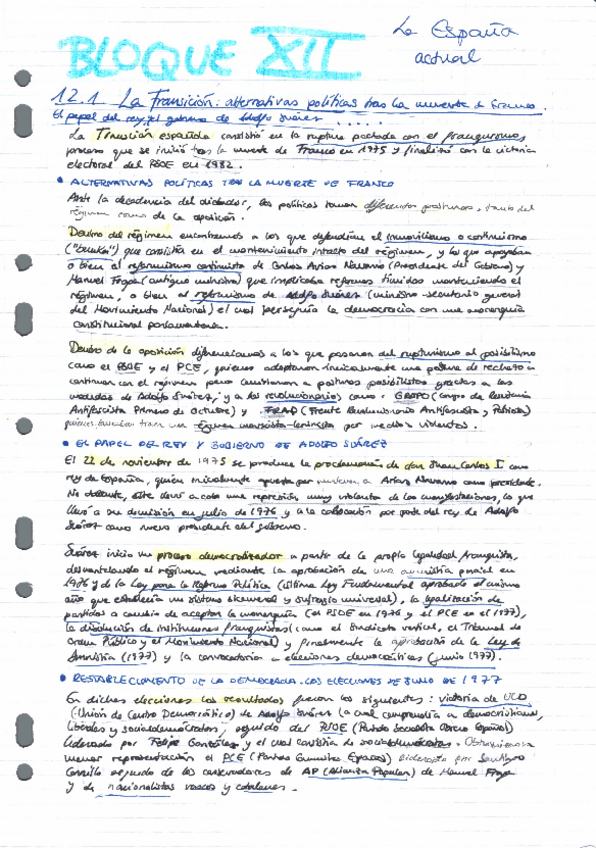 La España
actual
BLOQUE XII
12.1 La Transición: alternativas políticas tras la muerte de Franco.
El papel del rey, el gobierno de Adolfo Suárez
La Transición española consistió en la ruptura pactada con el franquismo,
proceso que se inició tras la muerte de Franco en 1975 y finalizó con la victoria
electoral del PSOE en 1982.
• ALTERNATIVAS POLÍTICAS TRAS LA MUERTE DE FRANCO
Ante la decadencia del dictador, los políticos toman diferentes posturas, tanto del
régimen como de la oposición.
Dentro del régimen encontramos a los que defendían el inmovilismo o continuismo
("bunker") que consistía en el mantenimiento intacto del régimen, y los que apoyaban
o bien al reformismo continuista de Carlos Arias Navarro (Presidente del Gobierno) y
Manuel Fraga (antiguo ministro) que implicaba reformas tímidas manteniendo el
régimen, o bien al reformismo de Adolfo Suárez (ministro-secretario general
del Movimiento Nacional) el cual perseguía la democracia con una monarquía
constitucional parlamentaria.
Dentro de la oposición diferenciamos a los que pasaron del rupturismo al posibilismo
como el PSOE y el PCE, quienes adoptaron inicialmente una postura de rechazo a
continuar con el régimen pero cambiaron a posturas posibilistas gracias a las
medidas de Adolfo Suárez, y a los revolucionarios como: GRAPO (Grupo de Resistencia
Antifascista Primero de Octubre) y FRAP (Frente Revolucionario Antifascista y Patriota)
quienes buscaban traer un régimen marxista-leninista por medios violentos.
• EL PAPEL DEL REY Y GOBIERNO DE ADOLFO SUÁREZ
El 22 de noviembre de 1975 se produce la proclamación de don Juan Carlos I como
rey de España, quien inicialmente apuesta por mantener a Arias Navarro como presidente.
No obstante, este llevó a cabo una represión muy violenta de las manifestaciones, lo que
llevó a su dimisión en julio de 1976 y a la colocación por parte del rey de Adolfo
Suárez como nuevo presidente del gobierno.
Suárez inicia un proceso democratizador a partir de la propia legalidad franquista,
desmantelando el régimen mediante la aprobación de una amnistía parcial en
1976 y de la Ley para la Reforma Política (última Ley Fundamental aprobada el mismo
año que establecía un sistema bicameral y sufragio universal), la legalización de
partidos a cambio de aceptar la monarquía (el PSOE en 1976 y el PCE en el 1977),
la disolución de instituciones franquistas (como el Sindicato vertical, el Tribunal de
Orden Público y el Movimiento Nacional) y finalmente la aprobación de la Ley de
Amnistía (1977) y la convocatoria a elecciones democráticas (junio 1977).
• RESTABLECIMIENTO DE LA DEMOCRACIA. LAS ELECCIONES DE JUNIO DE 1977
En dichas elecciones los resultados fueron los siguientes: victoria de UCD
(Unión de Centro Democrático) de Adolfo Suárez (la cual comprendía a democristianos,
liberales y socialdemócratas), seguido del PSOE (Partido Socialista Obrero Español)
liderado por Felipe González y el cual constaba de socialdemócratas. Obtuvieron
menor representación el PCE (Partido Comunista Español) liderado por Santiago
Carrillo seguido de los conservadores de AP (Alianza Popular) de Manuel Fraga
y de nacionalistas vascos y catalanes.